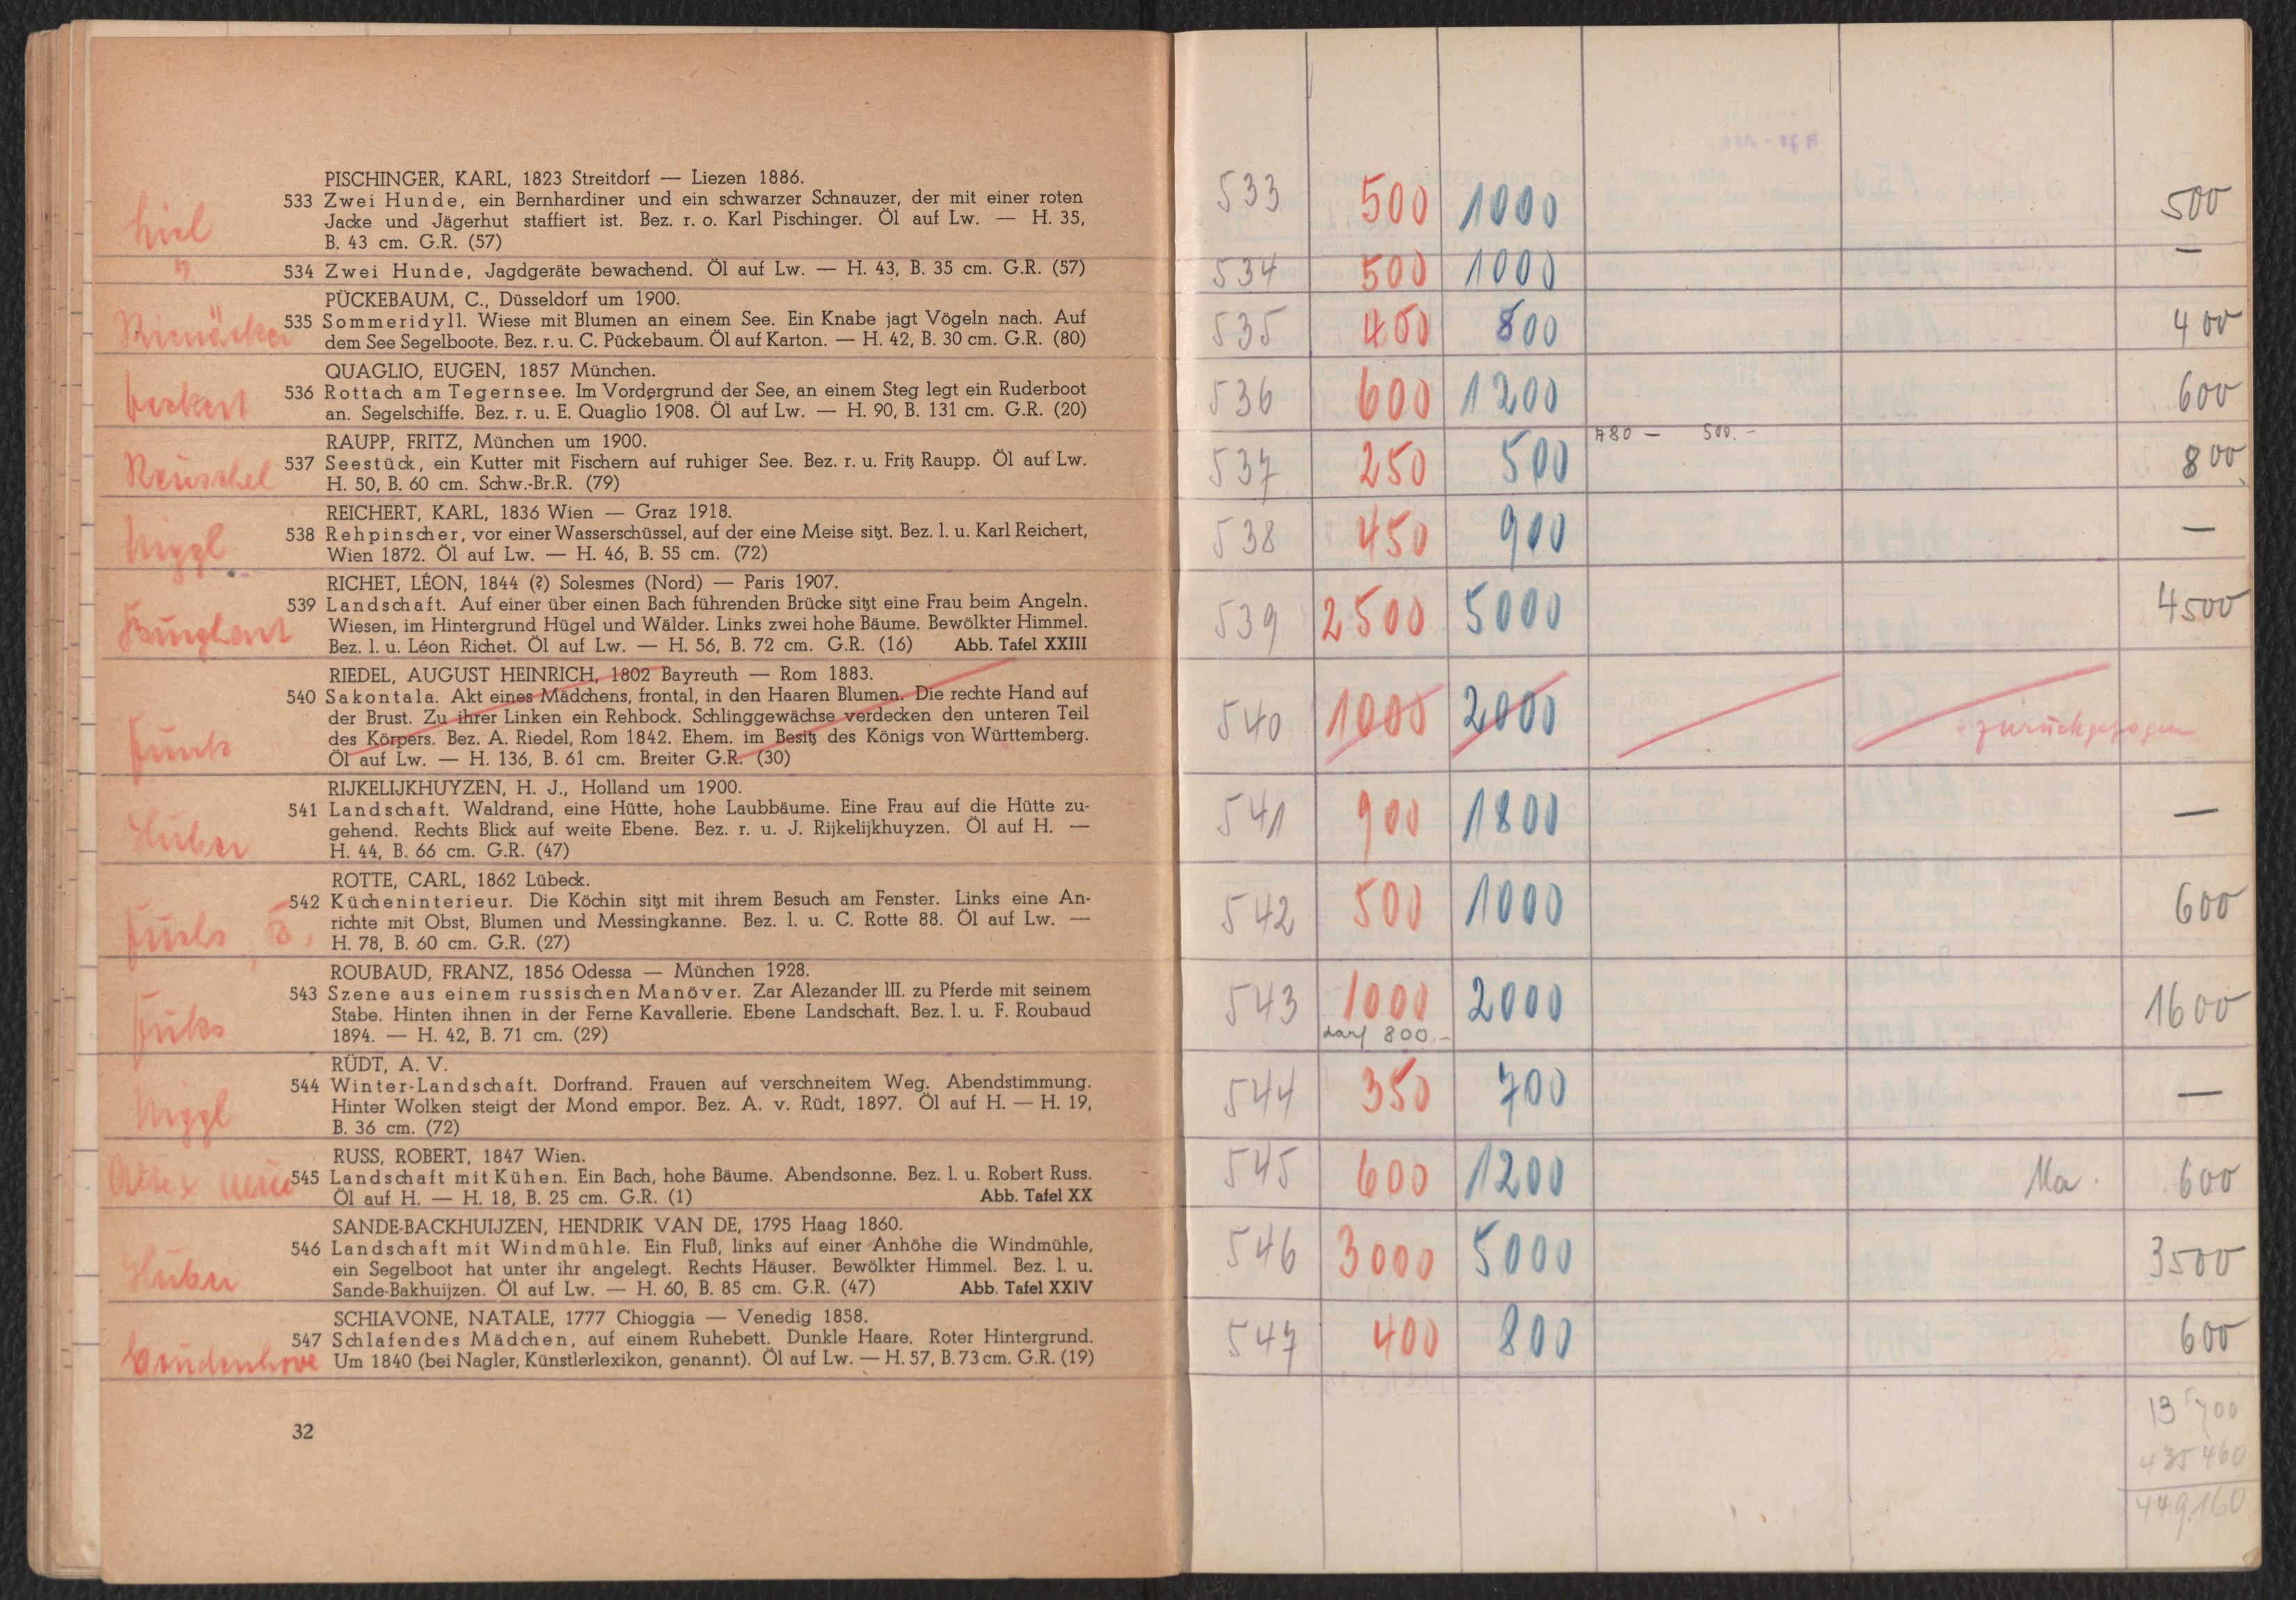 PISCHINGER, KARL, 1823 Streitdorf — Liezen 1886.
533 Zwei Hunde, ein Bernhardiner und ein schwarzer Schnauzer, der mit einer roten
Jacke und Jägerhut staffiert ist. Bez. r. o. Karl Pischinger. Öl auf Lw. — H. 35,
B. 43 cm. G.R. (57)
534 Zwei Hunde, Jagdgeräte bewachend. Öl auf Lw. — H. 43, B. 35 cm. G.R. (57)
PÜCKEBAUM, C., Düsseldorf um 1900.
535 Sommeridyll. Wiese mit Blumen an einem See. Ein Knabe jagt Vögeln nach. Auf
dem See Segelboote. Bez. r. u. C. Pückebaum. Öl auf Karton. — H. 42, B. 30 cm. G.R. (80)
QUAGLIO, EUGEN, 1857 München.
536 Rottach am Tegernsee. Im Vordergrund der See, an einem Steg legt ein Ruderboot
an. Segelschiffe. Bez. r. u. E. Quaglio 1908. Öl auf Lw. — H. 90, B. 131 cm. G.R. (20)
RAUPP, FRITZ, München um 1900.
Reuschel 537 Seestück, ein Kutter mit Fischern auf ruhiger See. Bez. r. u. Fritz Raupp. Öl auf Lw.
H. 50, B. 60 cm. Schw.-Br.R. (79)
REICHERT, KARL, 1836 Wien — Graz 1918.
Niggl 538 Rehpinscher, vor einer Wasserschüssel, auf der eine Meise sitzt. Bez. l. u. Karl Reichert,
Wien 1872. Öl auf Lw. — H. 46, B. 55 cm. (72)
RICHET, LÉON, 1844 (?) Solesmes (Nord) — Paris 1907.
539 Landschaft. Auf einer über einen Bach führenden Brücke sitzt eine Frau beim Angeln.
Wiesen, im Hintergrund Hügel und Wälder. Links zwei hohe Bäume. Bewölkter Himmel.
Bez. l. u. Léon Richet. Öl auf Lw. — H. 56, B. 72 cm. G.R. (16) Abb. Tafel XXIII
RIEDEL, AUGUST HEINRICH, 1802 Bayreuth — Rom 1883.
540 Sakontala. Akt eines Mädchens, frontal, in den Haaren Blumen. Die rechte Hand auf
der Brust. Zu ihrer Linken ein Rehbock. Schlinggewächse verdecken den unteren Teil
des Körpers. Bez. A. Riedel, Rom 1842. Ehem. im Besitz des Königs von Württemberg.
Öl auf Lw. — H. 136, B. 61 cm. Breiter G.R. (30)
RIJKELIJKHUYZEN, H. J., Holland um 1900.
541 Landschaft. Waldrand, eine Hütte, hohe Laubbäume. Eine Frau auf die Hütte zu-
gehend. Rechts Blick auf weite Ebene. Bez. r. u. J. Rijkelijkhuyzen. Öl auf H. —
Huber H. 44, B. 66 cm. G.R. (47)
ROTTE, CARL, 1862 Lübeck.
542 Kücheninterieur. Die Köchin sitzt mit ihrem Besuch am Fenster. Links eine An-
richte mit Obst, Blumen und Messingkanne. Bez. l. u. C. Rotte 88. Öl auf Lw. —
H. 78, B. 60 cm. G.R. (27)
ROUBAUD, FRANZ, 1856 Odessa — München 1928.
543 Szene aus einem russischen Manöver. Zar Alezander III. zu Pferde mit seinem
Stabe. Hinten ihnen in der Ferne Kavallerie. Ebene Landschaft. Bez. l. u. F. Roubaud
1894. — H. 42, B. 71 cm. (29)
RÜDT, A. V.
544 Winter-Landschaft. Dorfrand. Frauen auf verschneitem Weg. Abendstimmung.
Niggl Hinter Wolken steigt der Mond empor. Bez. A. v. Rüdt, 1897. Öl auf H. — H. 19,
B. 36 cm. (72)
RUSS, ROBERT, 1847 Wien.
545 Landschaft mit Kühen. Ein Bach, hohe Bäume. Abendsonne. Bez. l. u. Robert Russ.
Öl auf H. — H. 18, B. 25 cm. G.R. (1) Abb. Tafel XX
SANDE-BACKHUIJZEN, HENDRIK VAN DE, 1795 Haag 1860.
546 Landschaft mit Windmühle. Ein Fluß, links auf einer Anhöhe die Windmühle,
Huber ein Segelboot hat unter ihr angelegt. Rechts Häuser. Bewölkter Himmel. Bez. l. u.
Sande-Bakhuijzen. Öl auf Lw. — H. 60, B. 85 cm. G.R. (47) Abb. Tafel XXIV
SCHIAVONE, NATALE, 1777 Chioggia — Venedig 1858.
547 Schlafendes Mädchen, auf einem Ruhebett. Dunkle Haare. Roter Hintergrund.
Coudenhove Um 1840 (bei Nagler, Künstlerlexikon, genannt). Öl auf Lw. — H. 57, B. 73 cm. G.R. (19)
32
533 500 1000 500
534 500 1000 —
535 400 800 400
536 600 1200 600
480 — 500.—
537 250 500 800
538 450 900 —
539 2500 5000 4500
540 1000 2000 zurückgezogen
541 900 1800 —
542 500 1000 600
543 1000 2000 1600
darf 800.—
544 350 700 —
545 600 1200 Ma. 600
546 3000 5000 3500
547 400 800 600
13 700
435 460
449.160